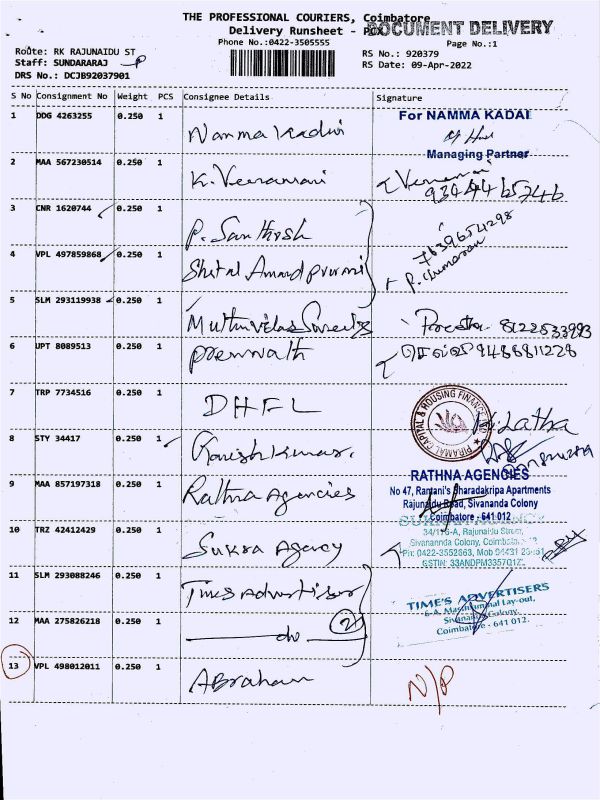 THE PROFESSIONAL COURIERS, Coimbatore
Delivery Runsheet - PCX
DOCUMENT DELIVERY
Phone No.:0422-3505555
Page No.:1
Route: RK RAJUNAIDU ST
Staff: SUNDARARAJ
DRS No.: DCJB92037901
RS No.: 920379
RS Date: 09-Apr-2022
S No Consignment No Weight PCS Consignee Details Signature
1 DDG 4263255 0.250 1 Namma Kadai For NAMMA KADAI
Managing Partner
2 MAA 567230514 0.250 1 K. Veeramani
9344465746
3 CNR 1620744 0.250 1 P. Santhosh 7639654298
4 VPL 497859868 0.250 1 Shital Anand
5 SLM 293119938 0.250 1 Muthuvilas Sweets 8122533993
6 UPT 8089513 0.250 1 Premnath 9488811228
7 TRP 7734516 0.250 1 DHFL
PIRAMAL CAPITAL & HOUSING FINANCE
Latha
8 STY 34417 0.250 1
9 MAA 857197318 0.250 1 Rathna Agencies RATHNA AGENCIES
No 47, Rantani's Sharadakripa Apartments
Rajunaidu Road, Sivananda Colony
Coimbatore - 641 012
10 TRZ 42412429 0.250 1 Sukra Agency
34/1 Rajunaidu Street,
Sivanannda Colony,
Pin: 0422-3552863, Mob
GSTIN: 33ANDPM3357Q1Z
11 SLM 293088246 0.250 1 Times Advertiser TIME'S ADVERTISERS
Lay-out,
Colony,
Coimbatore - 641 012.
12 MAA 275826218 0.250 1 do 2
13 VPL 498012011 0.250 1 Abraham N/P